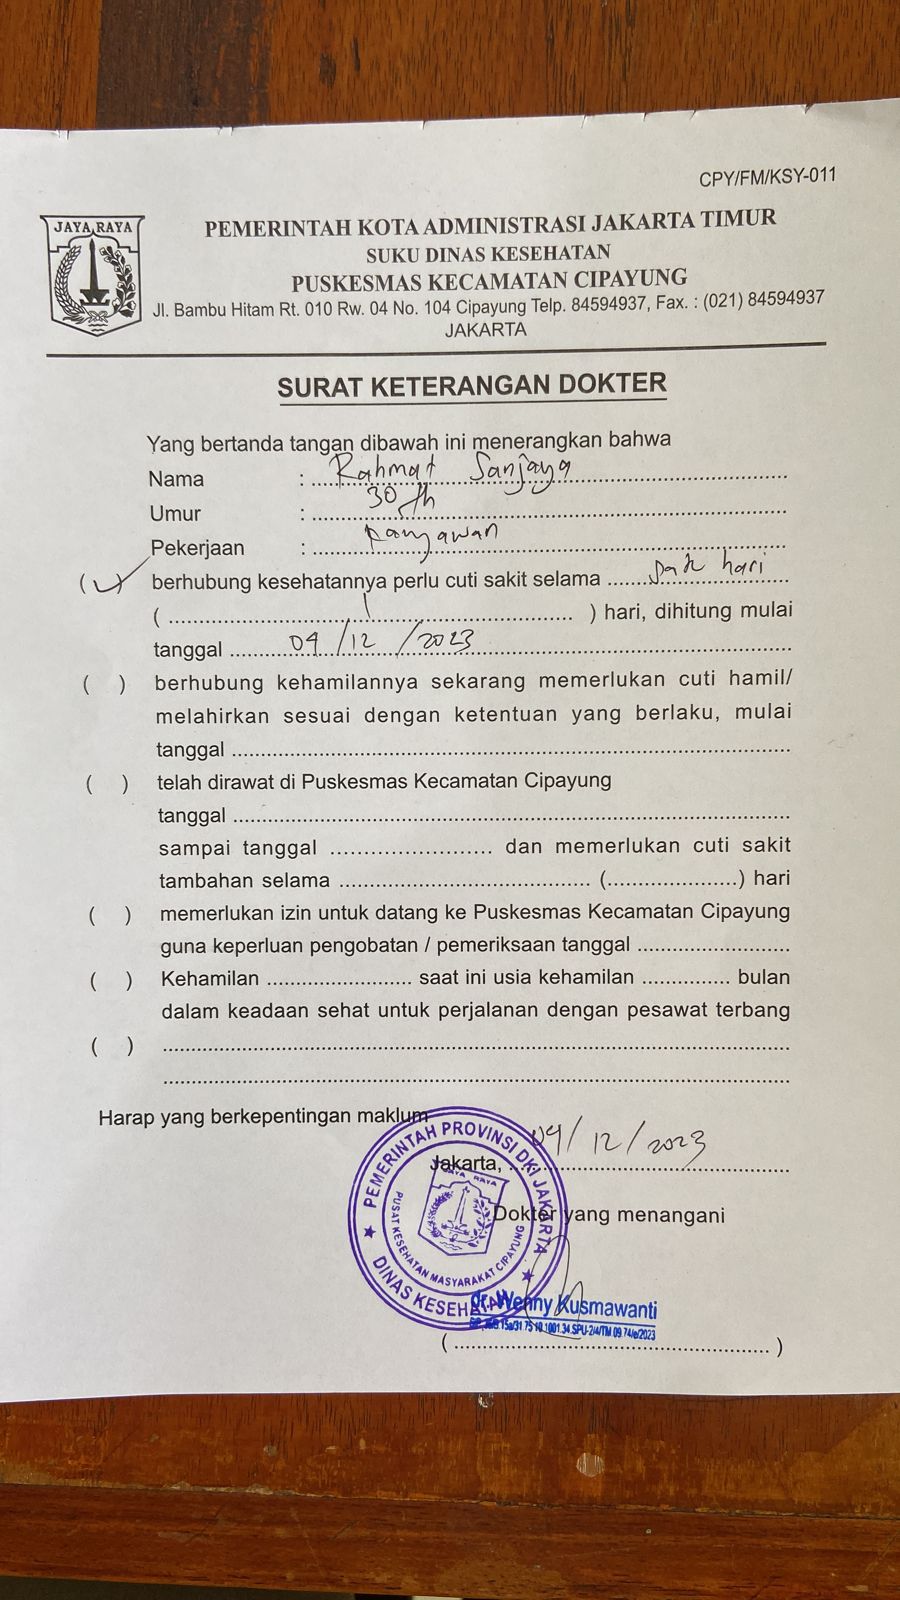 CPY/FM/KSY-011
JAYA RAYA
PEMERINTAH KOTA ADMINISTRASI JAKARTA TIMUR
SUKU DINAS KESEHATAN
PUSKESMAS KECAMATAN CIPAYUNG
Jl. Bambu Hitam Rt. 010 Rw. 04 No. 104 Cipayung Telp. 84594937, Fax. : (021) 84594937
JAKARTA
SURAT KETERANGAN DOKTER
Yang bertanda tangan dibawah ini menerangkan bahwa
Nama : Rahmat Sanjaya
Umur : 30 th
Pekerjaan : Karyawan
(✓) berhubung kesehatannya perlu cuti sakit selama satu hari
( 1 ) hari, dihitung mulai
tanggal 04/12/2023
( ) berhubung kehamilannya sekarang memerlukan cuti hamil/
melahirkan sesuai dengan ketentuan yang berlaku, mulai
tanggal ........
( ) telah dirawat di Puskesmas Kecamatan Cipayung
tanggal ........
sampai tanggal ........ dan memerlukan cuti sakit
tambahan selama ........ (........) hari
( ) memerlukan izin untuk datang ke Puskesmas Kecamatan Cipayung
guna keperluan pengobatan / pemeriksaan tanggal ........
( ) Kehamilan ........ saat ini usia kehamilan ........ bulan
dalam keadaan sehat untuk perjalanan dengan pesawat terbang
( ) ........
Harap yang berkepentingan maklum
Jakarta, 04/12/2023
Dokter yang menangani
PEMERINTAH PROVINSI DKI JAKARTA
DINAS KESEHATAN
PUSAT KESEHATAN MASYARAKAT CIPAYUNG
JAYA RAYA
dr. Wenny Kusmawanti
( ........ )